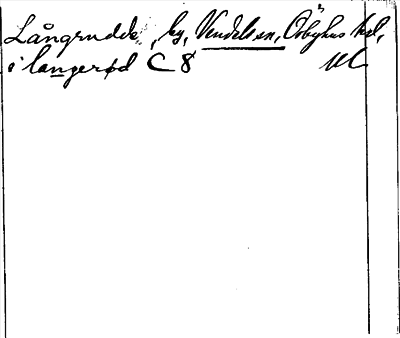 Långrudde, by, Vendels sn, Örbyhus hd,
i langerød C 8 Ul.